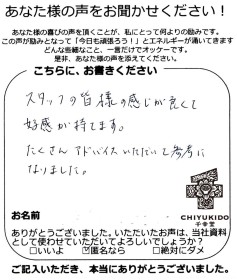 あなた様の声をお聞かせください！
あなた様の喜びの声を頂くことが、私にとって何よりの励みです。
この声が励みとなって「今日も頑張ろう！」とエネルギーが湧いてきます
どんな些細なこと、一言だけでオッケーです。
是非、あなた様の声を添えてください。
こちらに、お書きください
スタッフの皆様の感じが良くて
好感が持てます。
たくさんアドバイスいただいて参考に
なりました。
CHIYUKIDO
千幸堂
お名前
ありがとうございました。いただいたお声は、当社資料
として使わせていただいてよろしいでしょうか？
□いいよ ☑匿名なら □絶対にダメ
ご記入いただき、本当にありがとうございました。